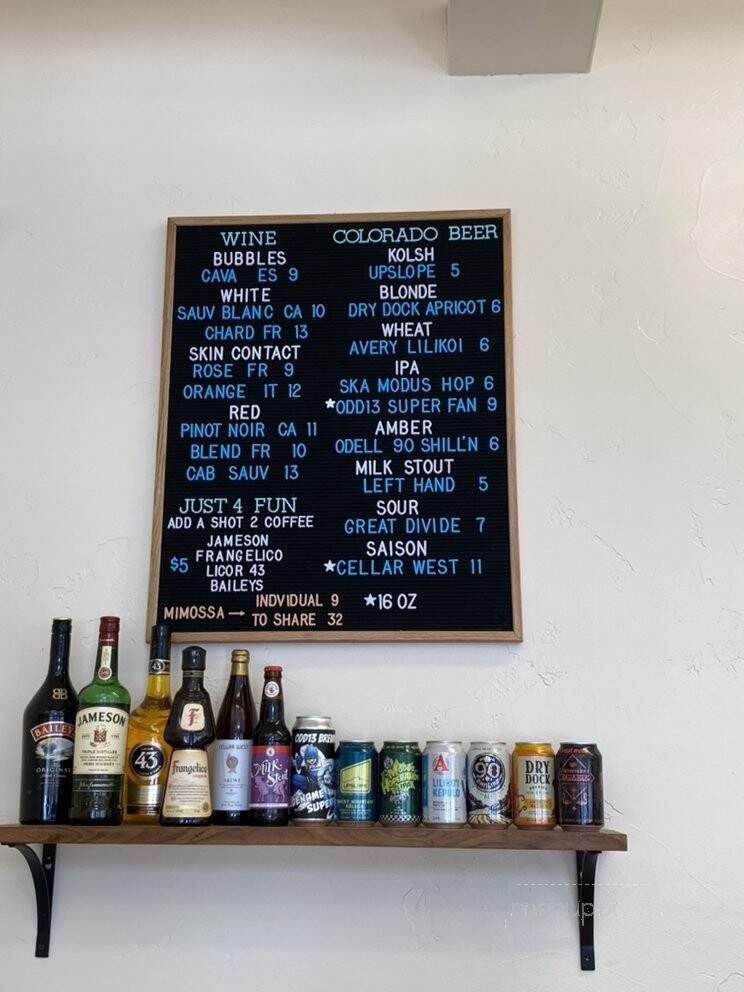 WINE
BUBBLES
CAVA ES 9
WHITE
SAUV BLANC CA 10
CHARD FR 13
SKIN CONTACT
ROSE FR 9
ORANGE IT 12
RED
PINOT NOIR CA 11
BLEND FR 10
CAB SAUV 13
JUST 4 FUN
ADD A SHOT 2 COFFEE
JAMESON
FRANGELICO
$5
LICOR 43
BAILEYS
MIMOSSA → INDVIDUAL 9
TO SHARE 32
COLORADO BEER
KOLSH
UPSLOPE 5
BLONDE
DRY DOCK APRICOT 6
WHEAT
AVERY LILIKOI 6
IPA
SKA MODUS HOP 6
★ODD13 SUPER FAN 9
AMBER
ODELL 90 SHILL'N 6
MILK STOUT
LEFT HAND 5
SOUR
GREAT DIVIDE 7
SAISON
★CELLAR WEST 11
★16 OZ
BAILEYS
ORIGINAL
JAMESON
TRIPLE DISTILLED
43
43
F
Frangelico
CELLAR WEST
Milk
Stout
ODD13 BREW
SUPER
UPSLOPE
A
LILIKO'I
KEPOLO
90
DRY
DOCK